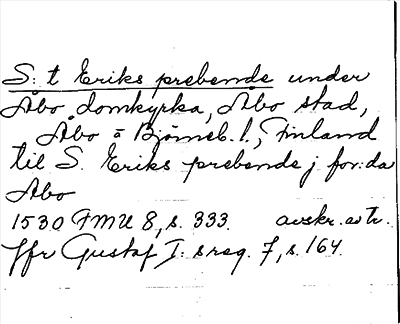 S:t Eriks prebende under
Åbo domkyrka, Åbo stad,
Åbo o Björneb. l., Finland
til S. Eriks prebende j for:da
Abo
1530 FMU 8, s. 333. avskr. avtr.
Jfr Gustaf I: s reg. 7, s. 164.